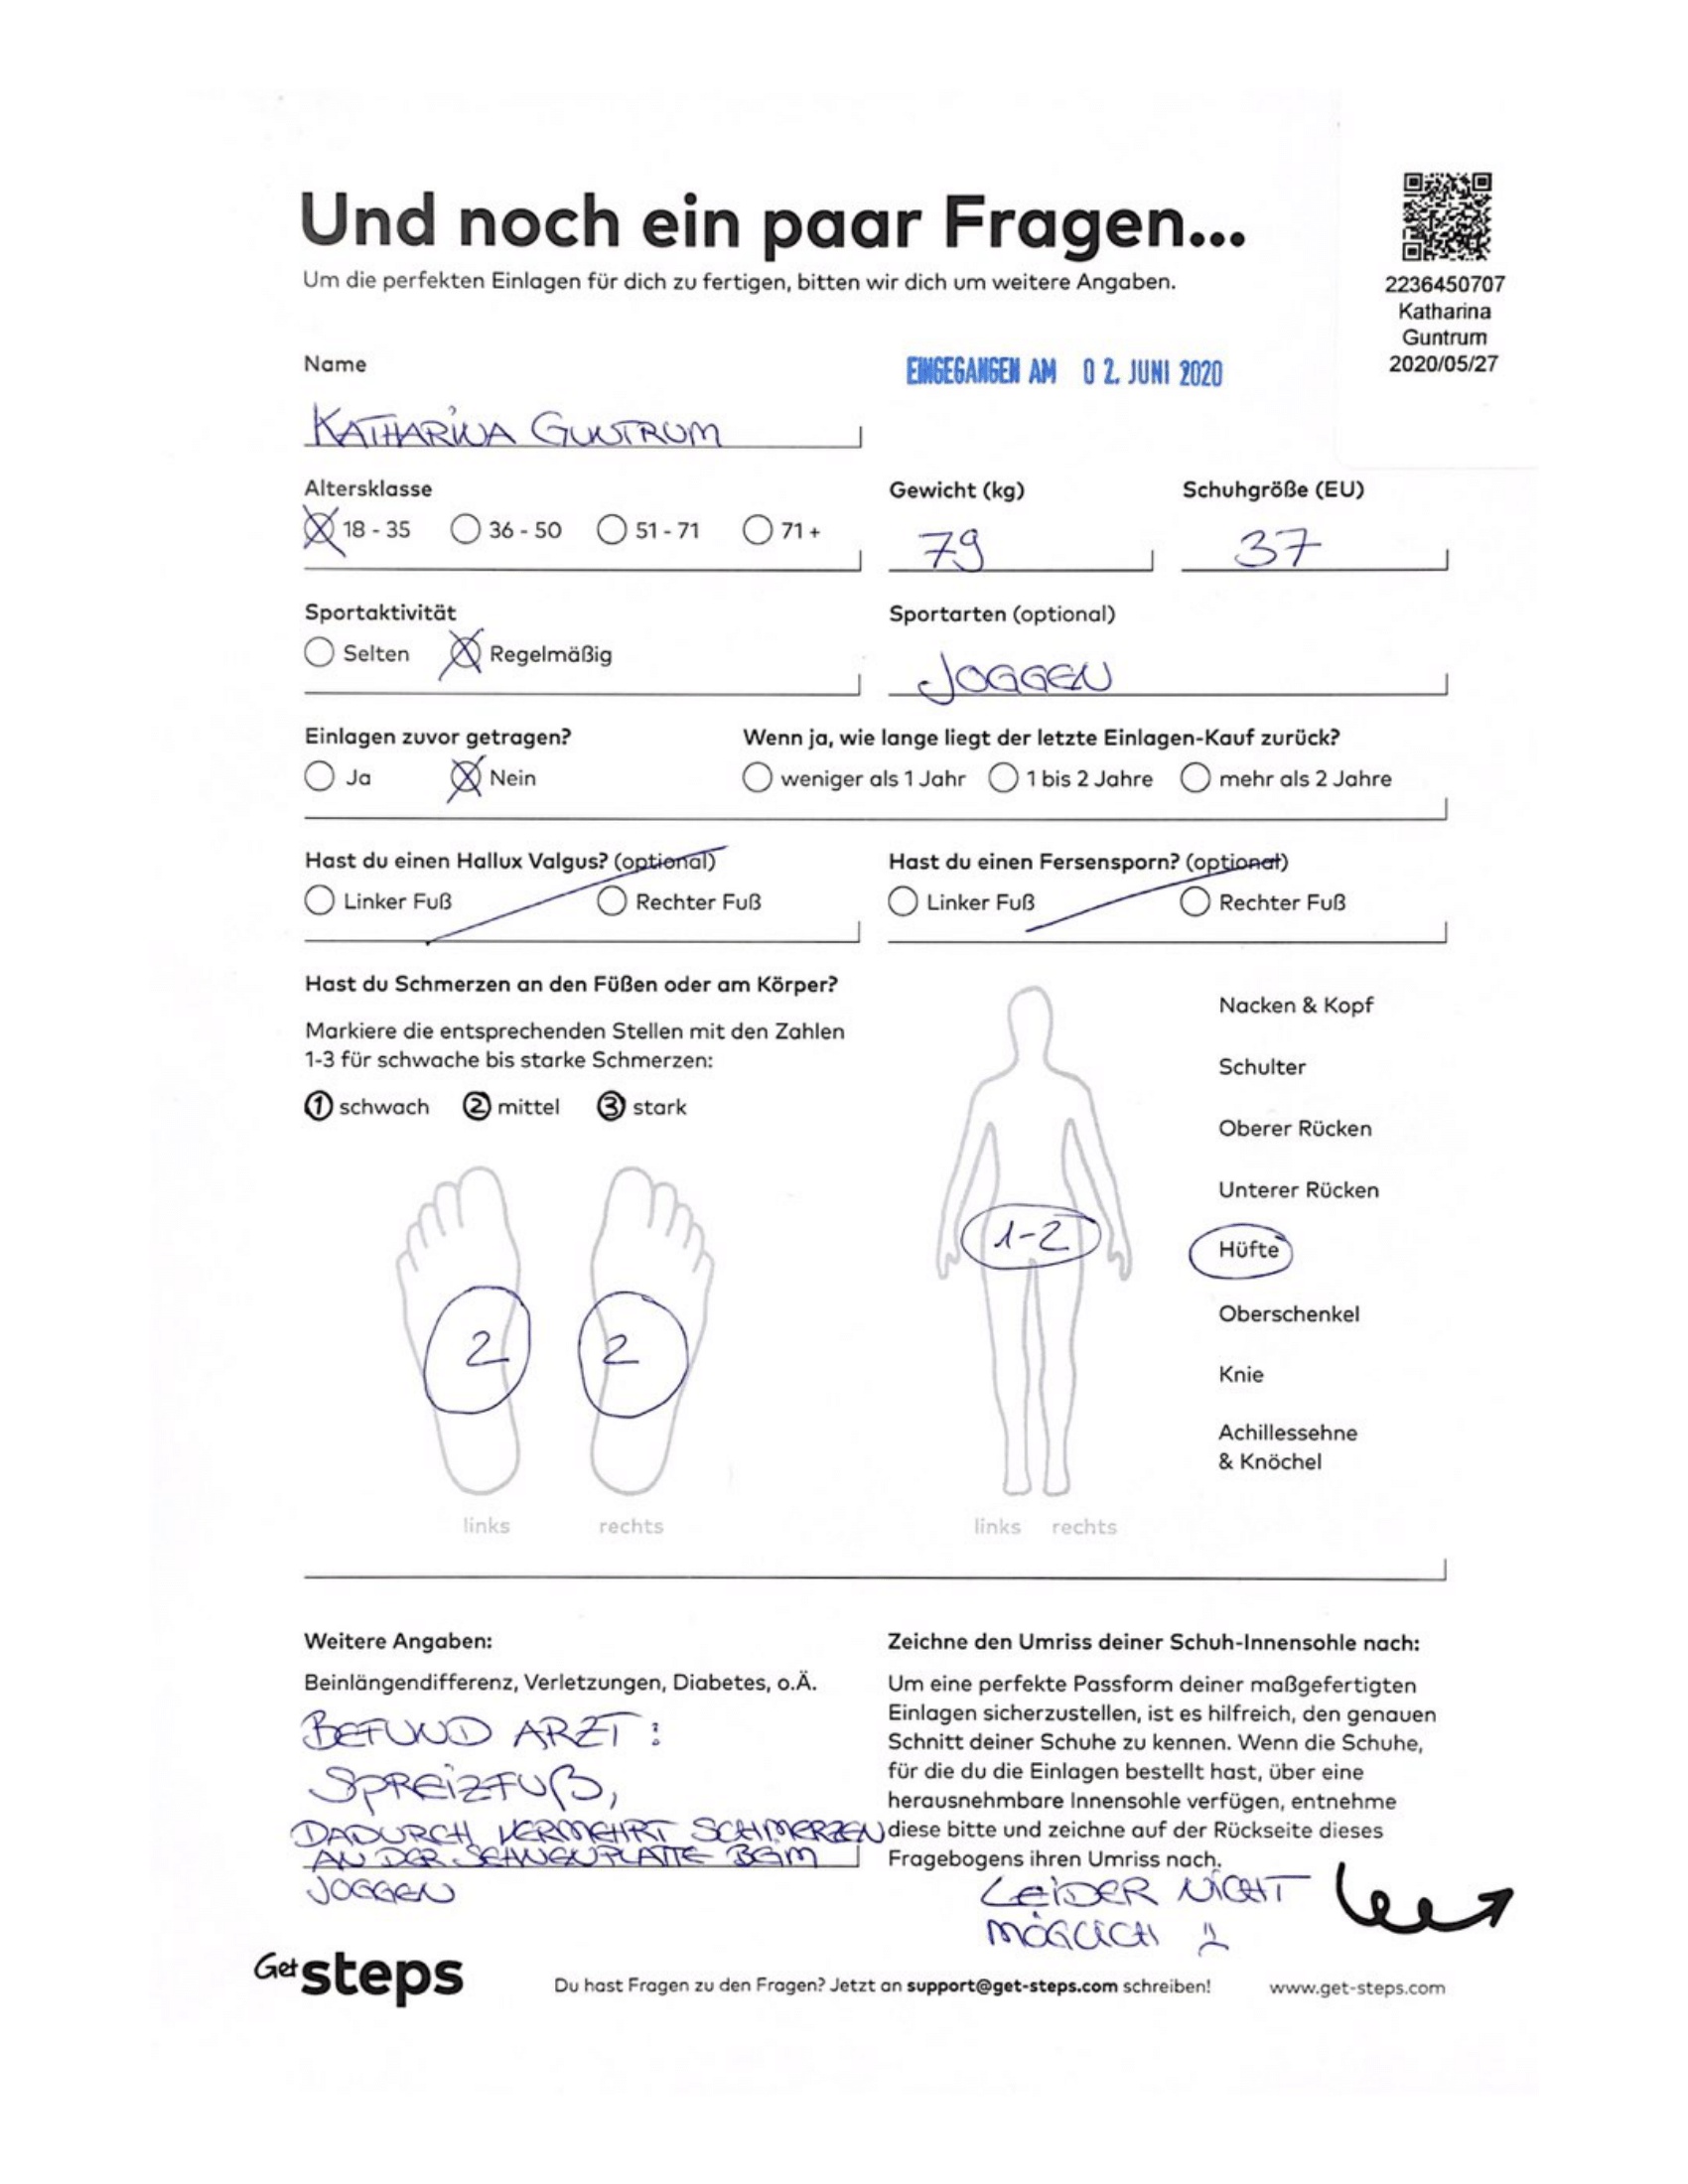 Und noch ein paar Fragen...
Um die perfekten Einlagen für dich zu fertigen, bitten wir dich um weitere Angaben.
2236450707
Katharina
Guntrum
2020/05/27
Name
EINGEGANGEN AM 0 2. JUNI 2020
KATHARINA GUNTRUM
Altersklasse
18 - 35 36 - 50 51 - 71 71 +
Gewicht (kg)
79
Schuhgröße (EU)
37
Sportaktivität
Selten Regelmäßig
Sportarten (optional)
JOGGEN
Einlagen zuvor getragen?
Ja Nein
Wenn ja, wie lange liegt der letzte Einlagen-Kauf zurück?
weniger als 1 Jahr 1 bis 2 Jahre mehr als 2 Jahre
Hast du einen Hallux Valgus? (optional)
Linker Fuß Rechter Fuß
Hast du einen Fersensporn? (optional)
Linker Fuß Rechter Fuß
Hast du Schmerzen an den Füßen oder am Körper?
Markiere die entsprechenden Stellen mit den Zahlen
1-3 für schwache bis starke Schmerzen:
1 schwach 2 mittel 3 stark
2 2
links rechts
1-2
links rechts
Nacken & Kopf
Schulter
Oberer Rücken
Unterer Rücken
Hüfte
Oberschenkel
Knie
Achillessehne
& Knöchel
Weitere Angaben:
Beinlängendifferenz, Verletzungen, Diabetes, o.Ä.
BEFUND ARZT:
SPREIZFUß,
DADURCH VERMEHRT SCHMERZEN
AN DER SEHNENPLATTE BEIM
JOGGEN
Zeichne den Umriss deiner Schuh-Innensohle nach:
Um eine perfekte Passform deiner maßgefertigten
Einlagen sicherzustellen, ist es hilfreich, den genauen
Schnitt deiner Schuhe zu kennen. Wenn die Schuhe,
für die du die Einlagen bestellt hast, über eine
herausnehmbare Innensohle verfügen, entnehme
diese bitte und zeichne auf der Rückseite dieses
Fragebogens ihren Umriss nach.
LEIDER NICHT
MÖGLICH
Get steps
Du hast Fragen zu den Fragen? Jetzt an support@get-steps.com schreiben!
www.get-steps.com